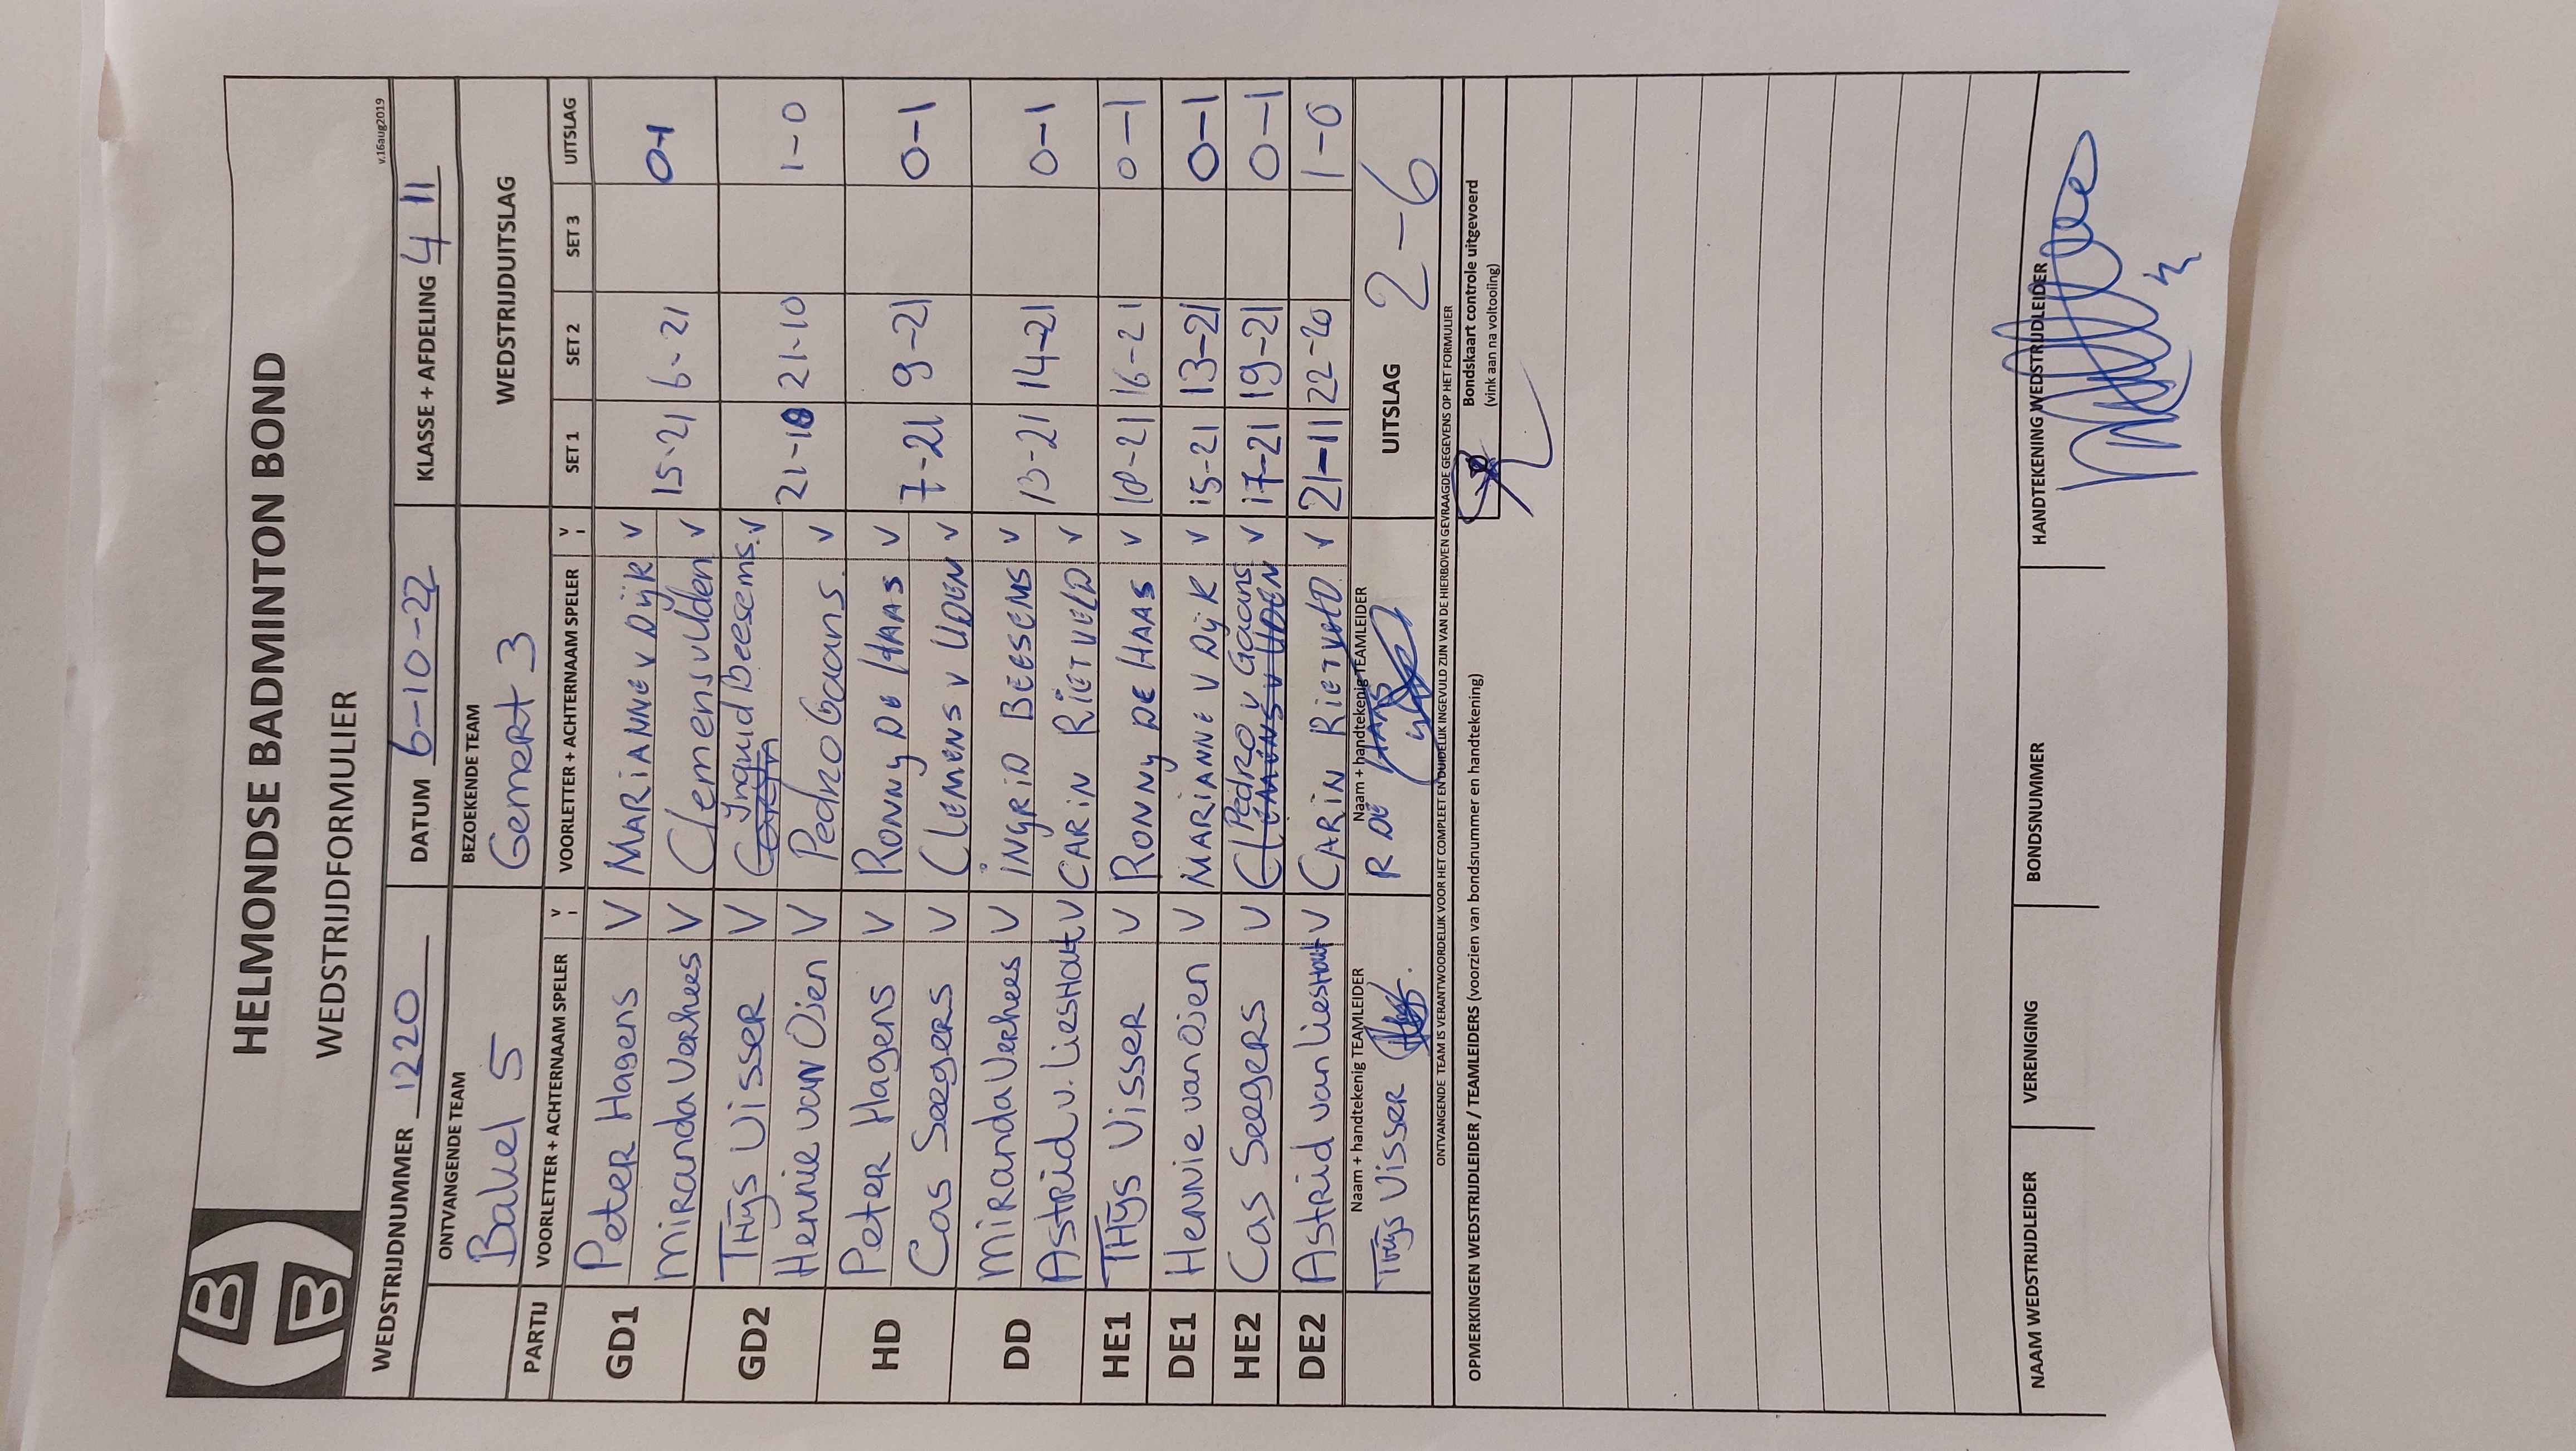 HELMONDSE BADMINTON BOND
WEDSTRIJDFORMULIER
v.16aug2019
WEDSTRIJDNUMMER 1220 DATUM 6-10-22 KLASSE + AFDELING 4 11
ONTVANGENDE TEAM BEZOEKENDE TEAM WEDSTRIJDUITSLAG
Bakel 5 Gemert 3
PARTIJ VOORLETTER + ACHTERNAAM SPELER V VOORLETTER + ACHTERNAAM SPELER V SET 1 SET 2 SET 3 UITSLAG
GD1 Peter Hagens V MARIANNE v Dijk V
Miranda Verhees V Clemens v Uden V 15-21 6-21 0-1
GD2 THijs Visser V Ingrid Beesems. V
Hennie van Osen V Pedro Gaans. V 21-18 21-10 1-0
HD Peter Hagens V Ronny De HAAS V
Cas Seegers V Clemens v UDEN V 7-21 9-21 0-1
DD Miranda Verhees V INGRID BEESEMS V
Astrid v. Lieshout V CARIN RIETVELD V 13-21 14-21 0-1
HE1 THijs Visser V RONNY DE HAAS V 18-21 16-21 0-1
DE1 Hennie van Osen V MARIANNE V Dijk V 15-21 13-21 0-1
HE2 Cas Seegers V Pedro v Gaans V 17-21 19-21 0-1
DE2 Astrid van Lieshout V CARIN RIETVELD V 21-11 22-20 1-0
Naam + handtekenig TEAMLEIDER Naam + handtekenig TEAMLEIDER
Thijs Visser R DE HAAS UITSLAG 2-6
ONTVANGENDE TEAM IS VERANTWOORDELIJK VOOR HET COMPLEET EN DUIDELIJK INGEVULD ZIJN VAN DE HIERBOVEN GEVRAAGDE GEGEVENS OP HET FORMULIER
OPMERKINGEN WEDSTRIJDLEIDER / TEAMLEIDERS (voorzien van bondsnummer en handtekening)
Bondskaart controle uitgevoerd
(vink aan na voltooling)
NAAM WEDSTRIJDLEIDER VERENIGING BONDSNUMMER HANDTEKENING WEDSTRIJDLEIDER